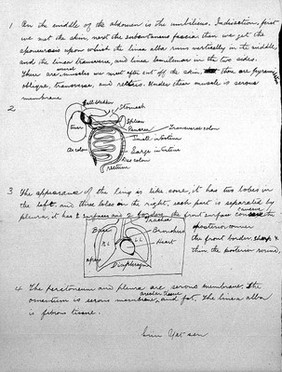 1 On the middle of the abdomen is the umbilicus. In dissection, first
we met the skin, next the subcutaneous fascia then we get the
aponeurosis upon which the linea alba runs vertically in the middle,
and the linea transversa, and linea semilunar in the two sides.
There are muscles we meet after cut off the skin, there are pyramidalis
oblique, transversus, and rectus. Under their muscle is serous
membrane.
2.
Gall bladder
Stomach
Liver
Spleen
Pancreas
Transversus colon
Small intestine
As colon
Large intestine
Des colon
rectum
3 The appearance of the lung is like cone, it has two lobes in
the left and three lobes on the right, each part is separated by
pleura, it has 2 surfaces and 2 borders, the front surface
posterior
the front border
thin the posterior
Trachea
Base
Bronchus
R.L.
L.L.
Heart
apex
Diaphragm
4 The peritoneum and pleura are serous membrane. The
omentum is serous membrane, areolar tissue and fat. The linea alba
is fibrous tissue.
Sun Yat-sen